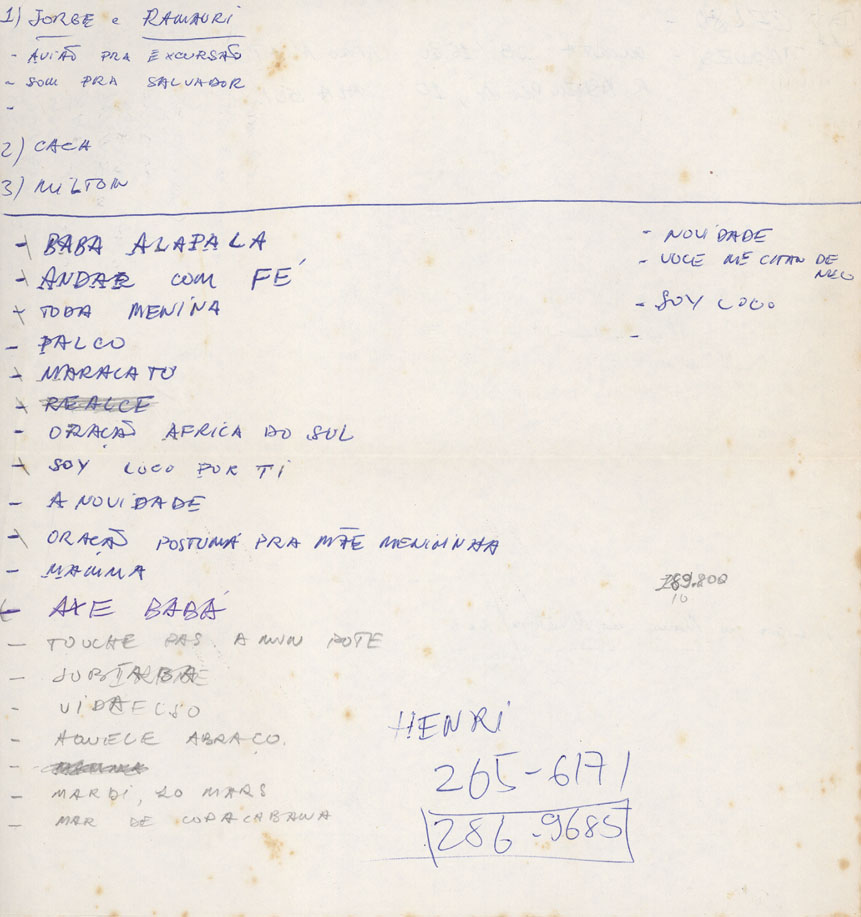 1) JORGE e RAMAURI
- AVIÃO PRA EXCURSÃO
- SOM PRA SALVADOR
-
2) CACA
3) MILTON
- BABA ALAPALA
- ANDAR COM FÉ
- TODA MENINA
- PALCO
- MARACATU
- REALCE
- ORAÇÃO AFRICA DO SUL
- SOY LOCO POR TI
- A NOVIDADE
- ORAÇÃO POSTUMA PRA MÃE MENININHA
- MAMMA
- AXE BABÁ
- TOUCHE PAS A MON POTE
- JUBIABA
-
- AQUELE ABRAÇO.
-
- MARDI, 10 MARS
- MAR DE COPACABANA
- NOVIDADE
- VOCE ME
- SOY LOCO
-
789.800
10
HENRI
265-6171
286-9685